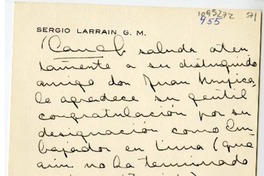 SERGIO LARRAIN G. M.
saluda aten-
tamente a su distinguido
amigo don Juan Mujica,
le agradece su gentil
congratulación por su
designación como Em-
bajador en Lima (que
aún no ha terminado